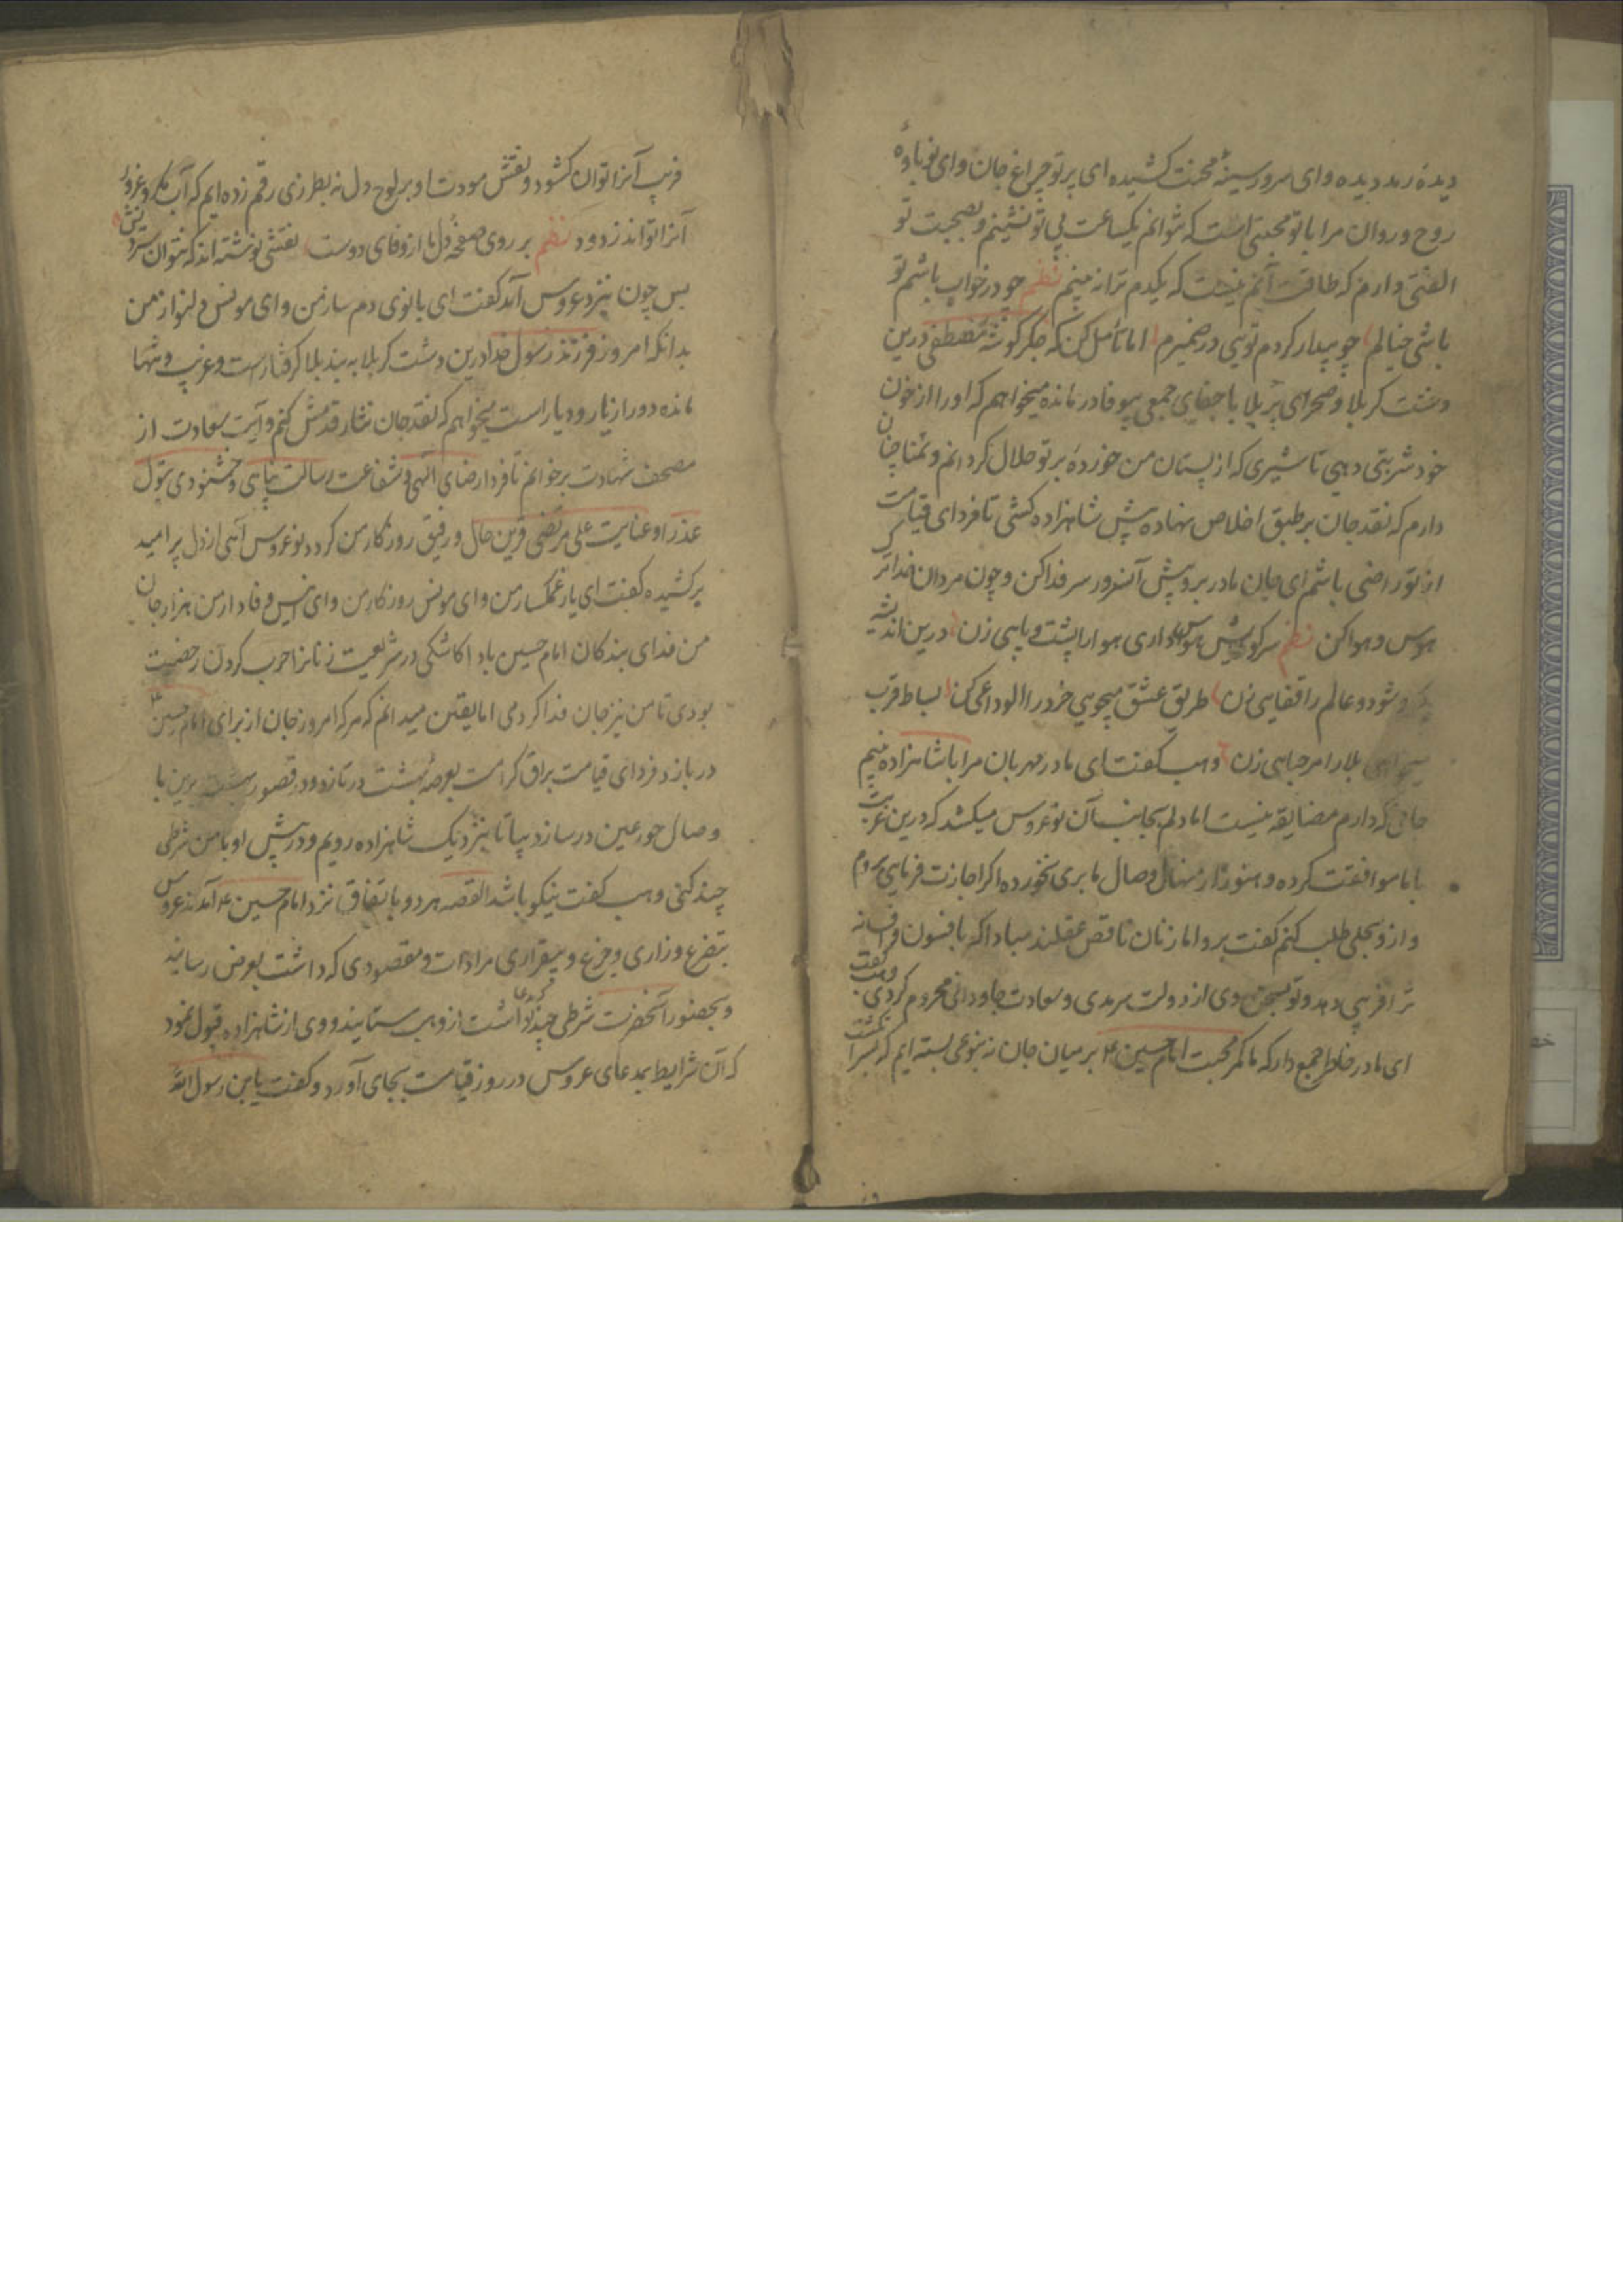 دیدهٔ رمد دیده و ای سرور سینهٔ محنت کشیده ای پرتو چراغ جان و ای نوباوهٔ
روح و روان مرا با تو محبتی است که نتوانم یکساعت بی تو نشینم و بصحبت تو
الفتی دارم که طاقت آنم نیست که یکدم ترا نه بینم نظم چو در خواب باشم تو
باشی خیالم چو بیدار کردم تویی در ضمیرم اما تأمل کن که جگر گوشهٔ مصطفی درین
دشت کربلا و صحرای پر بلا با جفای جمعی بیوفا در مانده میخواهم که او را از خون
خود شربتی دهی تا شیری که از پستان من خوردهٔ بر تو حلال کردانم و تمنا چنان
دارم که نقد جان بر طبق اخلاص نهاده پیش شاهزاده کشی تا فردای قیامت
از تو راضی باشم ای جان مادر برو پیش آن سرور سر فدا کن و چون مردان مرد ترک
هوس و هوا کن نظم سر کویش هوس داری هوا را پشت پایی زن درین اندیشه
یکرو شو دو عالم را قفایی زن طریق عشق میجویی خرد را الوداعی کن بساط قرب
میجواهی بلا را مرحبایی زن وهب کفت ای مادر مهربان مرا با شاهزاده نیم
جانی که دارم مضایقه نیست اما دلم بجانب آن نوعروس میکشد که درین غربت
با ما موافقت کرده و هنوز از نهال وصال ما بری نخورده اکر اجازت فرمایی بروم
و از وبحلی طلب کنم کفت برو اما زنان ناقص عقلند مبادا که بافسون و افسانه
ترا فریبی دهد و تو بسخن وی از دولت سرمدی و سعادت جاودانی محروم کردی وهب کفت
ای مادر خاطر جمع دار که ما کمر محبت امام حسین را بر میان جان نه بنوعی بسته ایم که بسر انکشت
فریب آنرا توان کشود و نقش مودت او بر لوح دل نه بطرزی رقم زده ایم که آب مکر و غرور
آنرا تواند زدود نظم بر روی صفحهٔ دل ما از وفای دوست نقشی نوشته اند که نتوان ستردنش
پس چون بنزد عروس آمد کفت ای بانوی دم ساز من و ای مونس دلنواز من
بدانکه امروز فرزند رسول خدا درین دشت کربلا به بند بلا کرفتار است و غریب و تنها
مانده دور از یار و دیار است میخواهم که نقد جان نثار قدمش کنم و آیت سعادت از
مصحف شهادت بر خوانم تا فردا رضای الهی و شفاعت رسالت پناهی و خشنودی بتول
عذرا و عنایت علی مرتضی قرین حال و رفیق روزکار من کردد نوعروس آهی از دل پر امید
برکشیده کفت ای یار غمکسار من و ای مونس روزکار من و ای انیس وفادار من هزار جان
من فدای بندکان امام حسین باد اکاشکی در شریعت زنانرا حرب کردن رخصت
بودی تا من نیز جان فدا کردمی اما یقین میدانم که هر که امروز جان از برای امام حسین
در بازد فردای قیامت براق کرامت بعرصهٔ بهشت در تازد و در قصور بهشت برین با
وصال حور عین در سازد بیا تا بنزدیک شاهزاده رویم و در پیش او با من شرطی
چند کنی وهب کفت نیکو باشد القصه هر دو باتفاق نزد امام حسین آمدند عروس
بتضرع و زاری و جزع و بیقراری مرادات و مقصودی که داشت بعرض رسانید
و بحضور آنحضرت شرطی چند که می داشت از وهب ستانید و وی از شاهزاده قبول نمود
که آن شرایط بمدعای عروس در روز قیامت بجای آورد و کفت یابن رسول الله